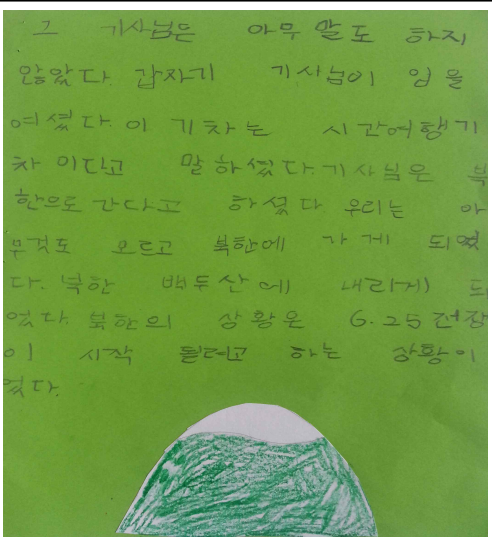 그 기사님은 아무 말도 하지
않았다. 갑자기 기사님이 입을
여셨다. 이 기차는 시간여행기
차 이다고 말 하셨다. 기사님은 북
한으로 간다고 하셨다 우리는 아
무것도 모르고 북한에 가게 되었
다. 북한 백두산에 내리게 되
었다. 북한의 상황은 6.25 전쟁
이 시작 될려고 하는 상황이
었다.